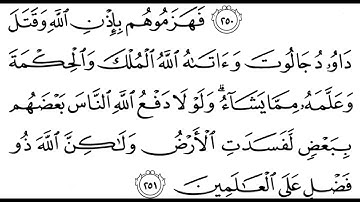 ٢٥٠ فَهَزَمُوهُم بِإِذۡنِ ٱللَّهِ وَقَتَلَ
دَاوُۥدُ جَالُوتَ وَءَاتَىٰهُ ٱللَّهُ ٱلۡمُلۡكَ وَٱلۡحِكۡمَةَ
وَعَلَّمَهُۥ مِمَّا يَشَآءُۗ وَلَوۡلَا دَفۡعُ ٱللَّهِ ٱلنَّاسَ بَعۡضَهُم
بِبَعۡضٖ لَّفَسَدَتِ ٱلۡأَرۡضُ وَلَٰكِنَّ ٱللَّهَ ذُو
فَضۡلٍ عَلَى ٱلۡعَٰلَمِينَ ٢٥١